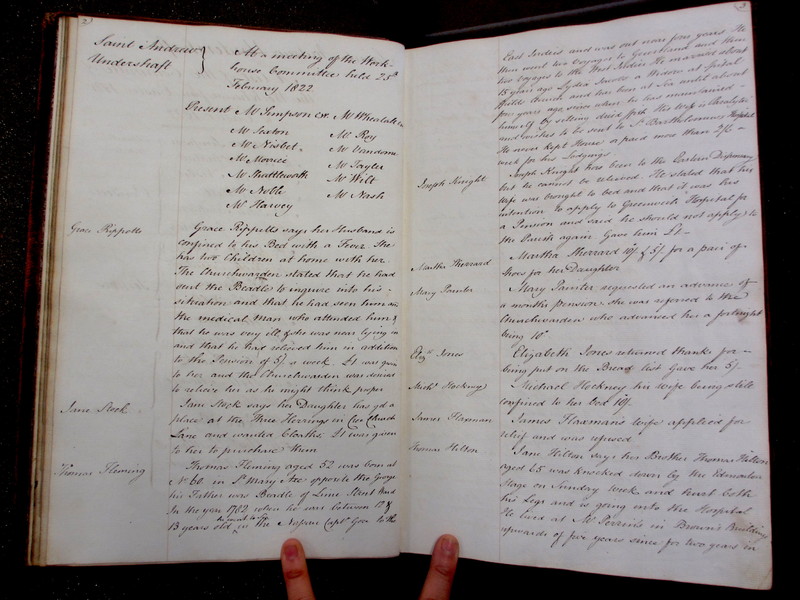 2
Saint Andrew
Undershaft
At a meeting of the Work-
house Committee held 25th
February 1822
Present Mr Simpson Mr Wheatcroft
Mr Sexton Mr Roy
Mr Nisbet Mr Vandome
Mr Morrice Mr Tayler
Mr Shuttleworth Mr Wilt
Mr Noble Mr Nash
Mr Harvey
Grace Rippolls
Grace Rippolls says her Husband is
confined to his Bed with a Fever. She
has two Children at home with her.
The Churchwarden stated that he had
sent the Beadle to inquire into his
situation and that he had seen him and
the medical man who attended him &
that he was very ill & she was near lying in
and that he had relieved him in addition
to the Pension of 5/ a week. It was given
to her and the Churchwarden was desired
to relieve her as he might think proper
Jane Stock
Jane Stock says her Daughter has got a
place at the Three Herrings in Church
Lane and wanted Cloaths. It was given
to her to purchase them
Thomas Fleming
Thomas Fleming aged 52 was born at
No 60 in St Mary Axe opposite the George
his Father was Beadle of Lime Street Ward
In the year 1782 when he was between 12 &
13 years old he went to Sea in the Captn Gea to the
3
East Indies and was out near four years He
then went two Voyages to Greenland and then
two Voyages to the West Indies He married about
15 years ago Lydia a Widow at Spital
fields Church and has been at Sea until about
four years ago since when he has maintained
himself by selling His Wife is
and wishes to be sent to St Bartholomews Hospital
He never kept House or paid more than 2/6
week for his Lodgings
Joseph Knight
Joseph Knight has been to the Eastern Dispensary
but he cannot be relieved. He stated that his
Wife was brought to bed and that it was his
intention to apply to Greenwich Hospital for
a Pension and said he should not apply to
the Parish again Gave him £1
Martha Sherrard
Martha Sherrard 10/ & 5/ for a pair of
shoes for her Daughter
Mary Painter
Mary Painter requested an advance of
a months pension She was referred to the
Churchwarden who advanced her a fortnight
being 10s
Elizth Jones
Elizabeth Jones returned thanks for
being put on the Bread list Gave her 5/
Michl Hackney
Michael Hackney his wife being still
confined to her bed 10/
James Flaxman
James Flaxman's wife applied for
relief and was refused
Thomas Hilton
Jane Hilton says her Brother Thomas Hilton
aged 65 was knocked down by the Edmonton
Stage on Sunday Week and hurt both
his Legs and is going into the Hospital
He lived at Mr Perrins in Brown's Buildings
upwards of five years since for two years in